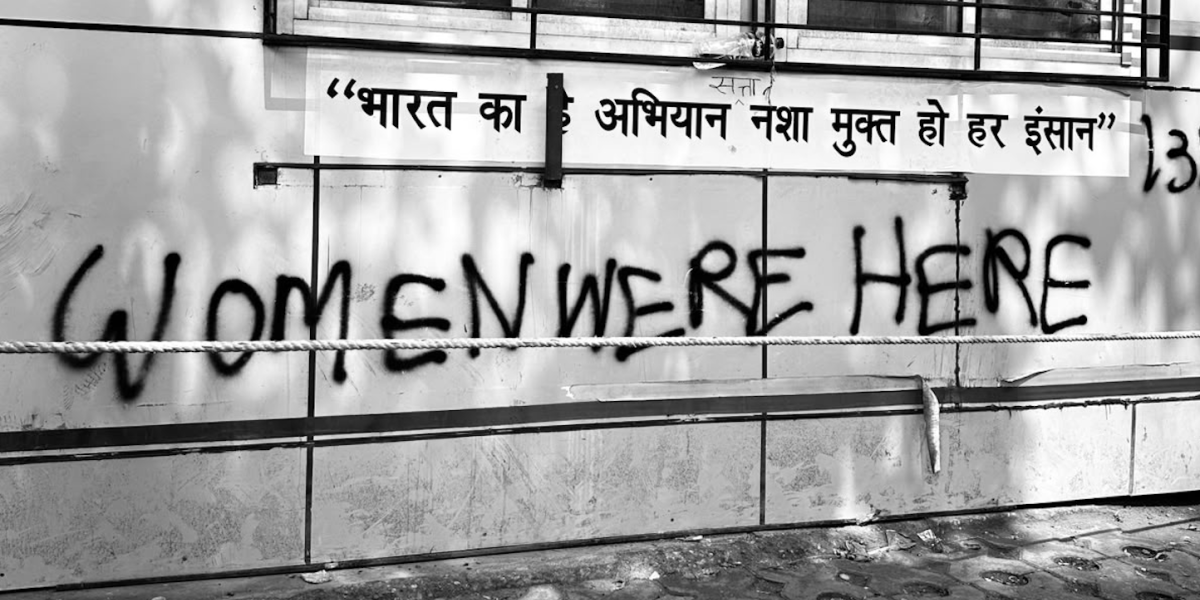 सत्ता
“भारत का है अभियान नशा मुक्त हो हर इंसान”
13
WOMEN WERE HERE